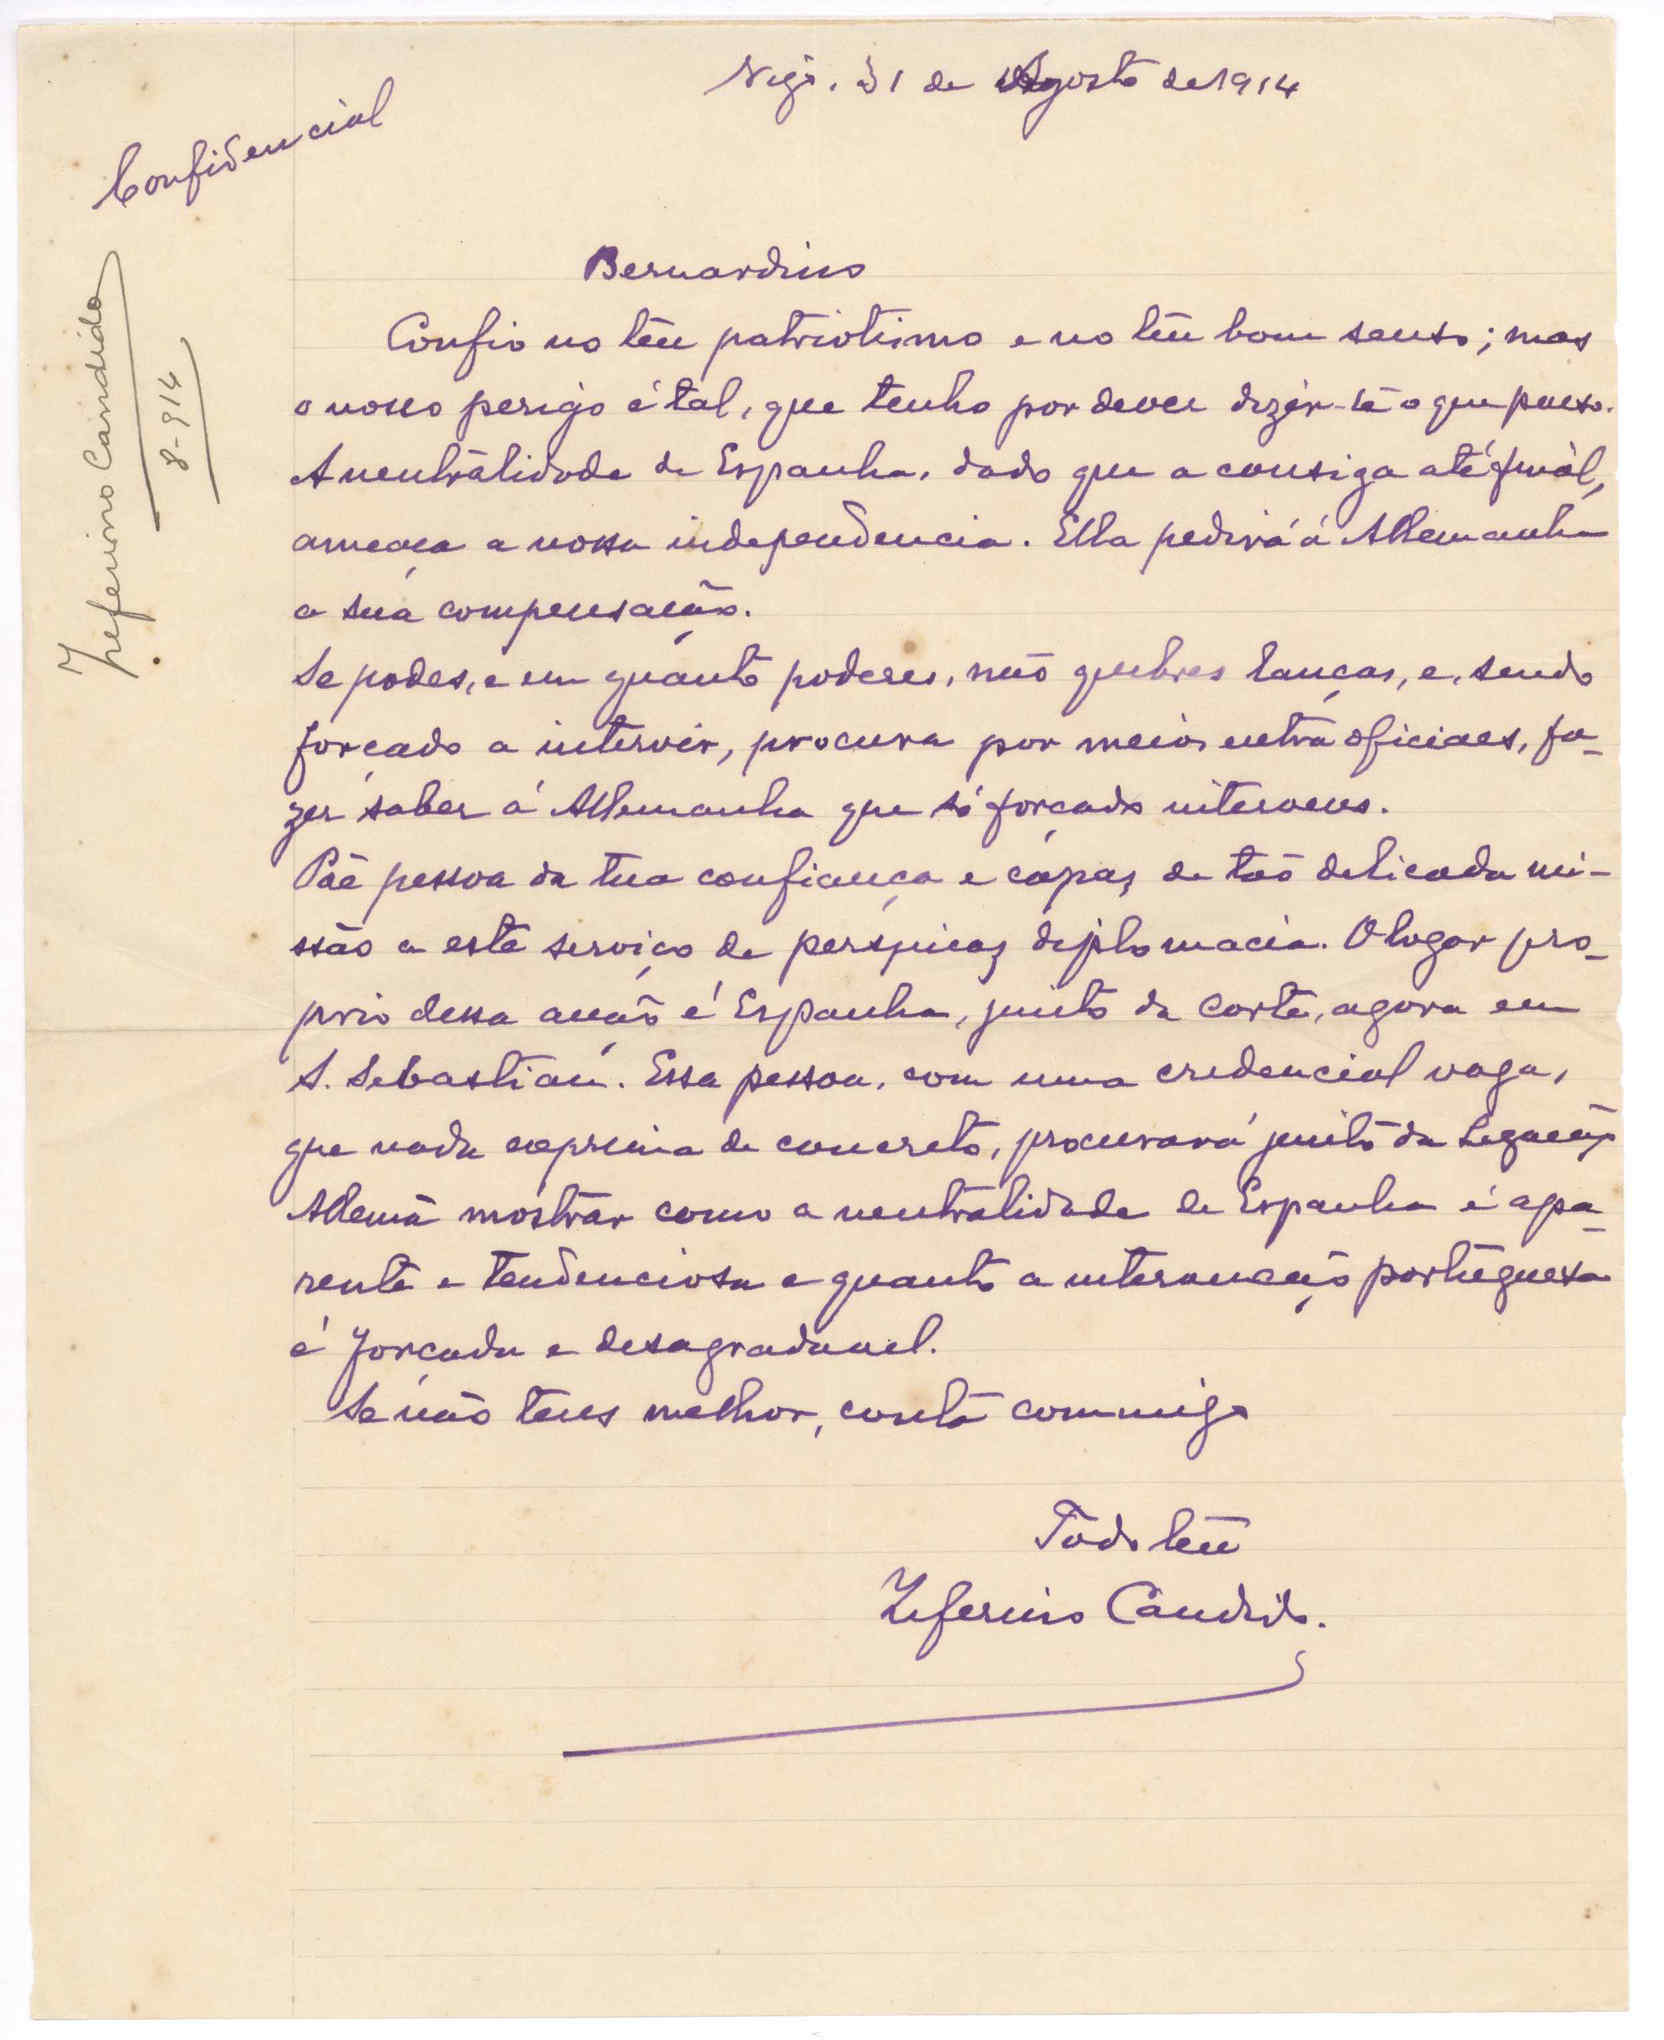 Vigo. 31 de Agosto de 1914
Confidencial
Zeferino Candido
8-914
Bernardino
Confio no teu patriotismo e no teu bom senso; mas
o nosso perigo é tal, que tenho por dever dizer-te o que penso.
A neutralidade da Espanha, dado que a consiga até final,
ameaça a nossa independencia. Ella pedirá á Allemanha
a sua compensação.
Se podes, e em quanto poderes, não quebres lanças, e, sendo
forçado a intervir, procura por meios extra oficiaes, fa-
zer saber á Allemanha que só forçado intervens.
Põe pessoa da tua confiança e capaz de tão delicada mi-
ssão a este serviço de perspicaz diplomacia. O logar pro-
prio dessa acção é Espanha, junto da Corte, agora em
S. Sebastian. Essa pessoa, com uma credencial vaga,
que nada exprima de concreto, procurará junto da Legação
Allemã mostrar como a neutralidade de Espanha é apa-
rente e tendenciosa e quanto a intervenção portuguesa
é forçada e desagradavel.
Se não tens melhor, conta commigo
Todo teu
Zeferino Candido.